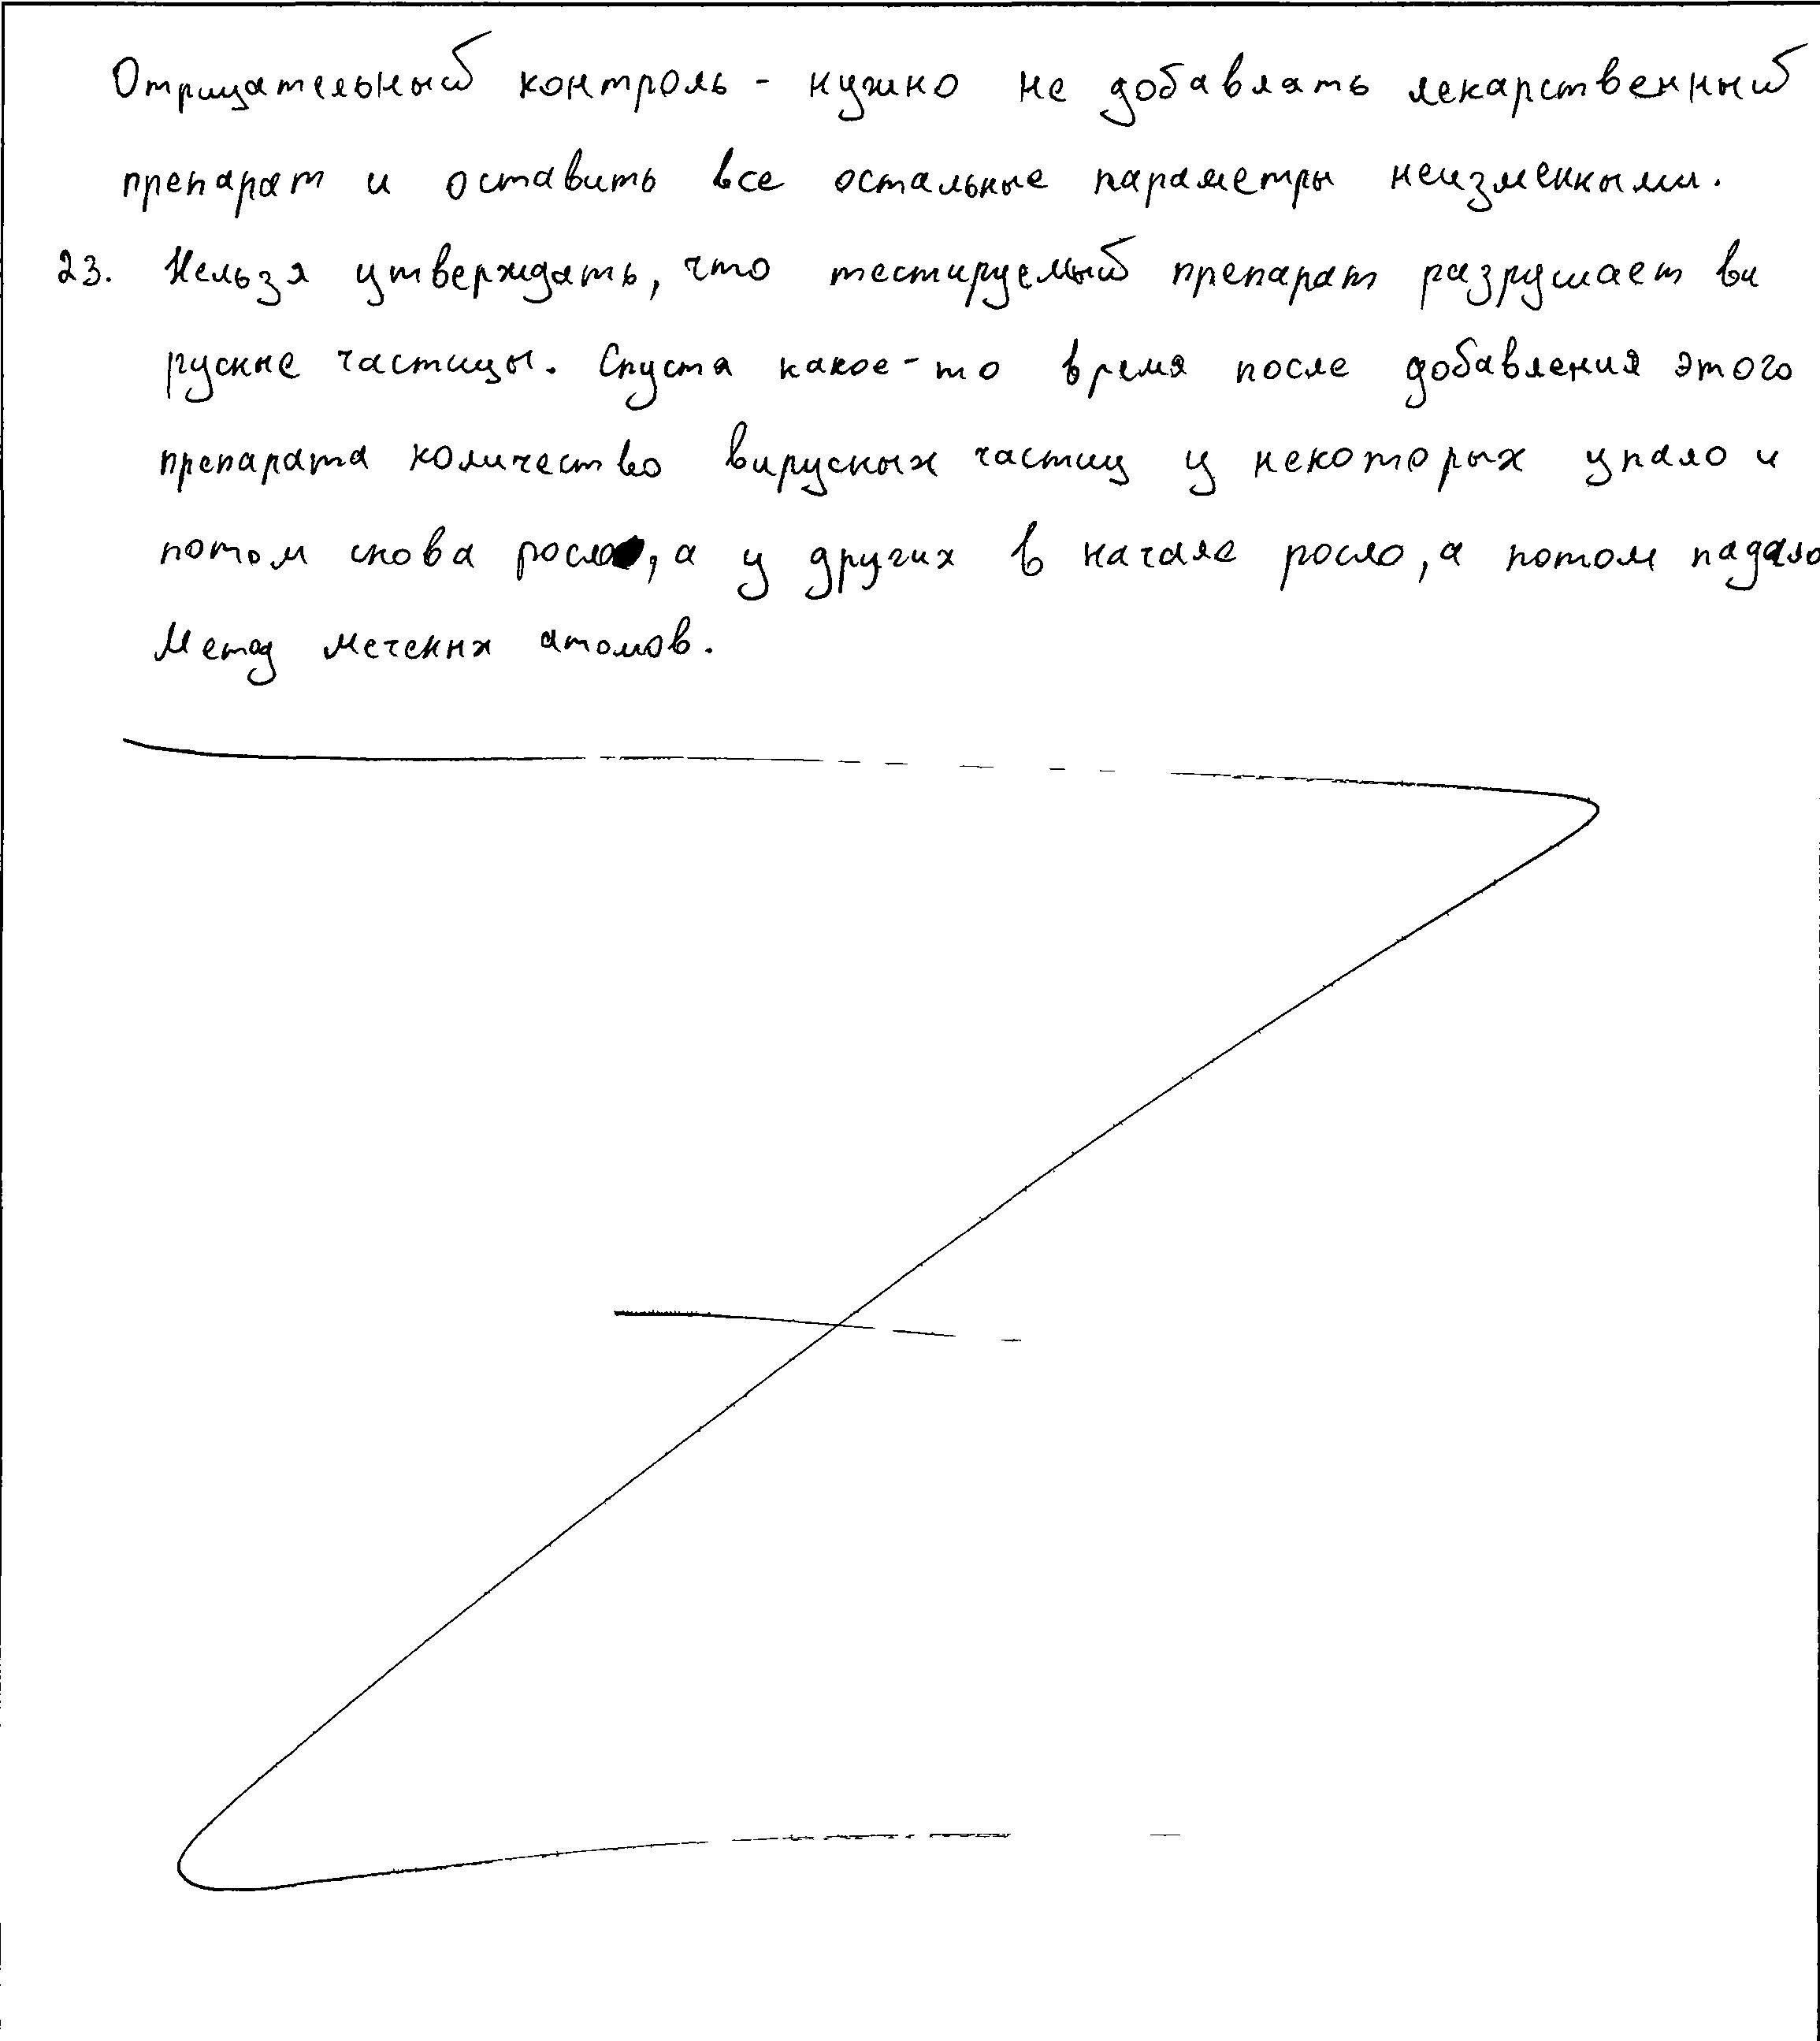 Отрицательный контроль - нужно не добавлять лекарственный
препарат и оставить все остальные параметры неизменными.
23. Нельзя утверждать, что тестируемый препарат разрушает ви
русные частицы. Спустя какое-то время после добавления этого
препарата количество вирусных частиц у некоторых упало и
потом снова росло, а у других в начале росло, а потом падало
Метод меченых атомов.